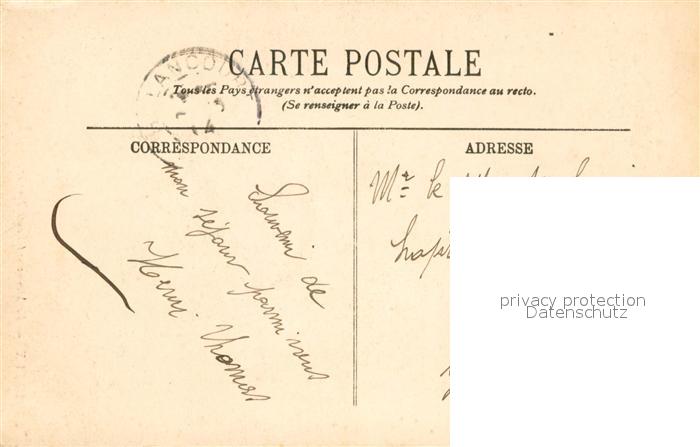 CARTE POSTALE
Tous les Pays étrangers n'acceptent pas la Correspondance au recto.
(Se renseigner à la Poste).
CORRESPONDANCE
Souvenir de
mon séjour parmi vous
Henri Thomas
ADRESSE
Mr le
privacy protection
Datenschutz